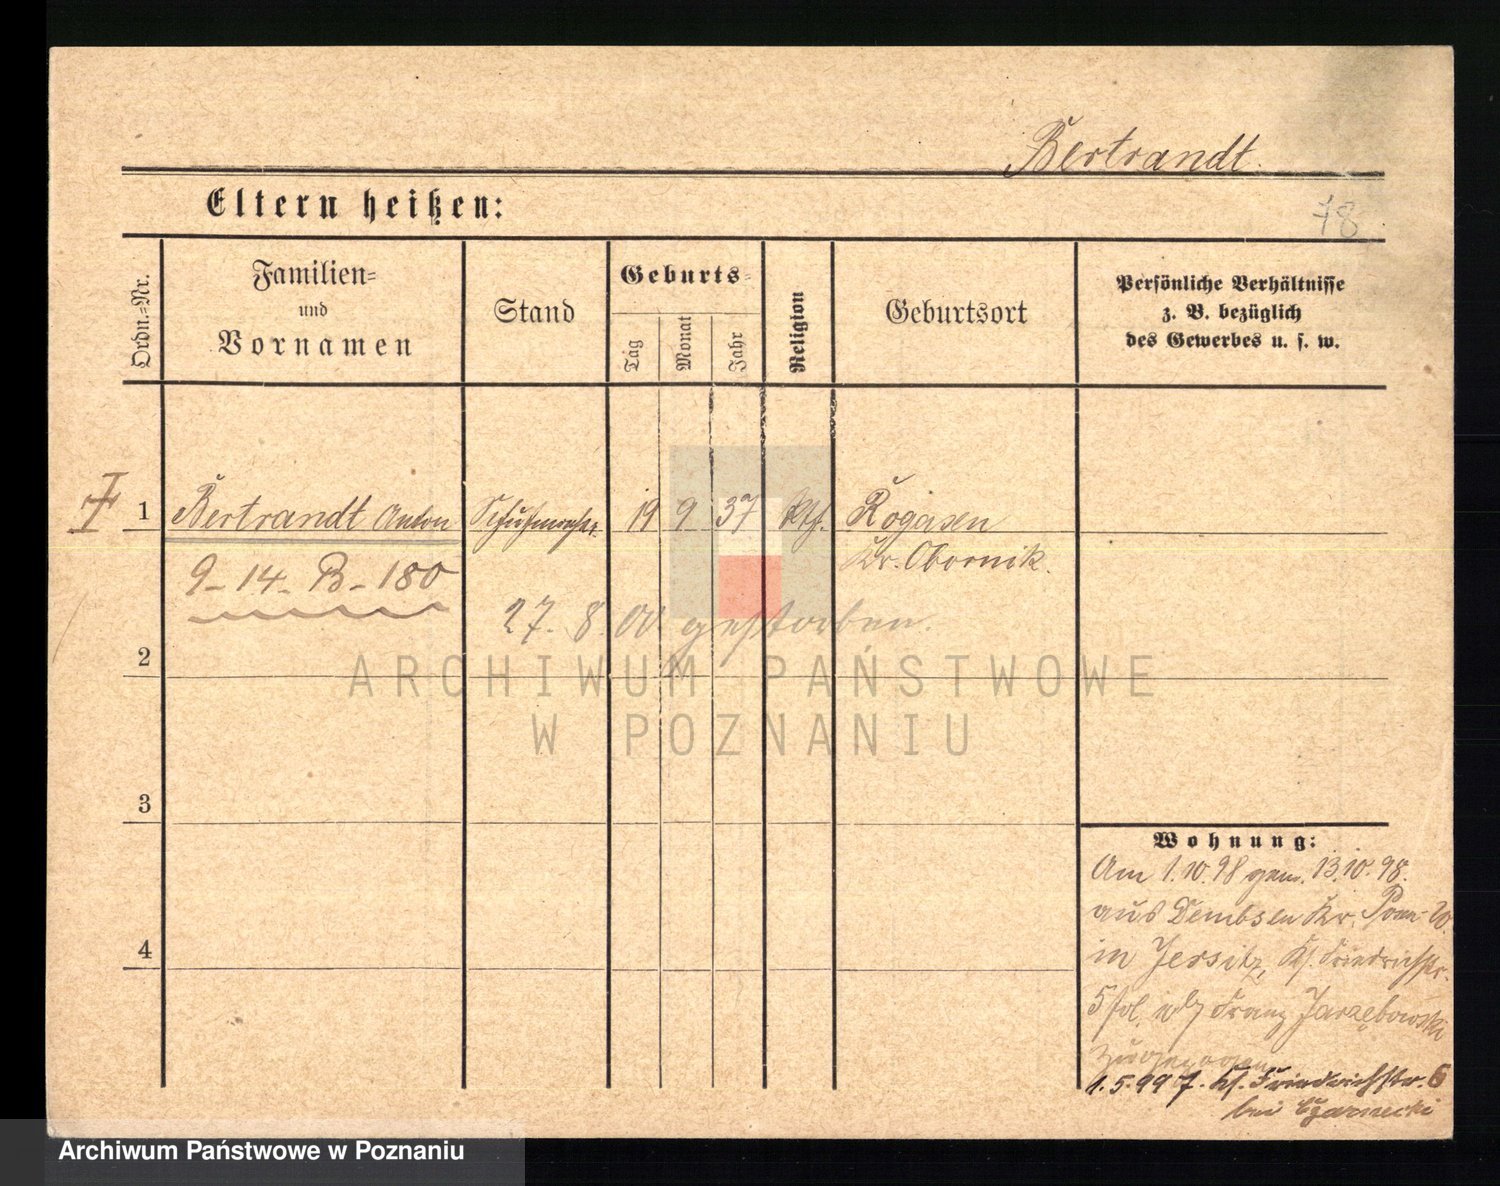 Bertrandt.
Eltern heißen:
78
Ordn.=Nr.
Familien=
und
Vornamen
Stand
Geburts=
Tag
Monat
Jahr
Religion
Geburtsort
Persönliche Verhältnisse
z. B. bezüglich
des Gewerbes u. s. w.
1 Bertrandt Anton 19 9 37 Kth. Rogasen
Kr. Obornik.
9-14-B-180
27. 8. 00 gestorben.
2
ARCHIWUM PAŃSTWOWE
W POZNANIU
3
Wohnung:
Am 1.10.98 gem. 13.10.98.
aus Dembsen Kr. Posen-W.
4
in Jersitz, Kl. Friedrichstr.
5 Franz Jarzębowski
zugezogen
1.5.99 7. Kl. Friedrichstr. 6
bei Czarnecki
Archiwum Państwowe w Poznaniu